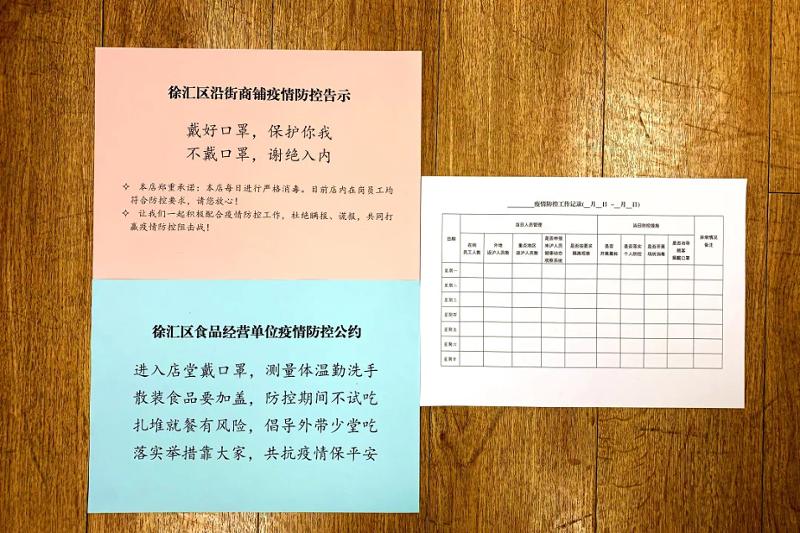 徐汇区沿街商铺疫情防控告示
戴好口罩，保护你我
不戴口罩，谢绝入内
本店郑重承诺：本店每日进行严格消毒。目前店内在岗员工均
符合防控要求，请您放心！
让我们一起积极配合疫情防控工作，杜绝瞒报、谎报，共同打
赢疫情防控阻击战！
徐汇区食品经营单位疫情防控公约
进入店堂戴口罩，测量体温勤洗手
散装食品要加盖，防控期间不试吃
扎堆就餐有风险，倡导外带少堂吃
落实举措靠大家，共抗疫情保平安
疫情防控工作记录(__月__日 -__月__日)
日期
当日人员管理
当日防控措施
异常情况
备注
在岗
员工人数
外地
返沪人员数
重点地区
返沪人员数
是否申报
来沪人员
健康动态
观察系统
是否按要求
隔离观察
是否
开展测温
是否落实
个人防护
是否开展
场所消毒
是否劝导
顾客
佩戴口罩
星期一
星期二
星期三
星期四
星期五
星期六
星期日